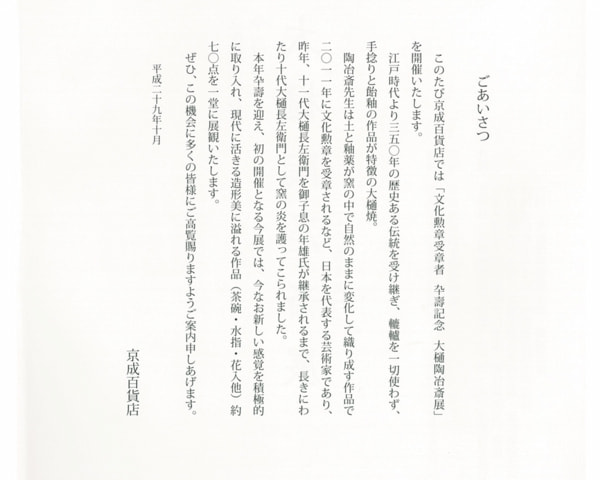 ごあいさつ
このたび京成百貨店では「文化勲章受章者　卆壽記念　大樋陶冶斎展」
を開催いたします。
江戸時代より三五〇年の歴史ある伝統を受け継ぎ、轆轤を一切使わず、
手捻りと飴釉の作品が特徴の大樋焼。
陶冶斎先生は土と釉薬が窯の中で自然のままに変化して織り成す作品で
二〇一一年に文化勲章を受章されるなど、日本を代表する芸術家であり、
昨年、十一代大樋長左衛門を御子息の年雄氏が継承されるまで、長きにわ
たり十代大樋長左衛門として窯の炎を護ってこられました。
本年卆壽を迎え、初の開催となる今展では、今なお新しい感覚を積極的
に取り入れ、現代に活きる造形美に溢れる作品（茶碗・水指・花入他）約
七〇点を一堂に展観いたします。
ぜひ、この機会に多くの皆様にご高覧賜りますようご案内申しあげます。
平成二十九年十月
京成百貨店